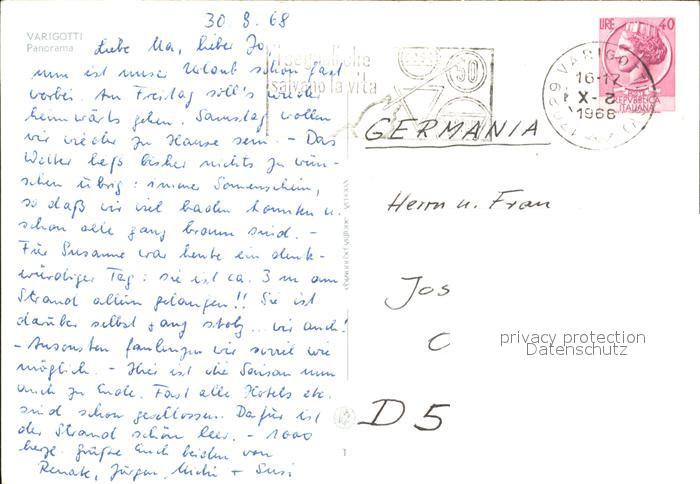 VARIGOTTI
Panorama
30.9.68
Liebe Ma, lieber Jo,
nun ist unser Urlaub schon fast
vorbei. Am Freitag soll's wieder
heimwärts gehen. Samstag wollen
wir wieder zu Hause sein. - Das
Wetter ließ bisher nichts zu wün-
schen übrig: immer Sonnenschein,
so daß wir viel baden konnten u.
schon alle ganz braun sind. -
Für Susanne war heute ein denk-
würdiger Tag: sie ist ca. 3 m am
Strand allein gelaufen!! Sie ist
darüber selbst ganz stolz... wir auch!
- Ansonsten faulenzen wir soviel wie
möglich. - Hier ist die Saison nun
auch zu Ende. Fast alle Hotels etc.
sind schon geschlossen. Dafür ist
der Strand schön leer. - 1000
herzl. Grüße Euch beiden von
Renate, Jürgen, Michi + Susi
segnaletiche
salvano la vita
50
LIRE 40
REPUBBLICA
ITALIANA
17029 VARIGOTTI
16-17
2-X
1968
GERMANIA
Herrn u. Frau
Jos
D 5
privacy protection
Datenschutz
1